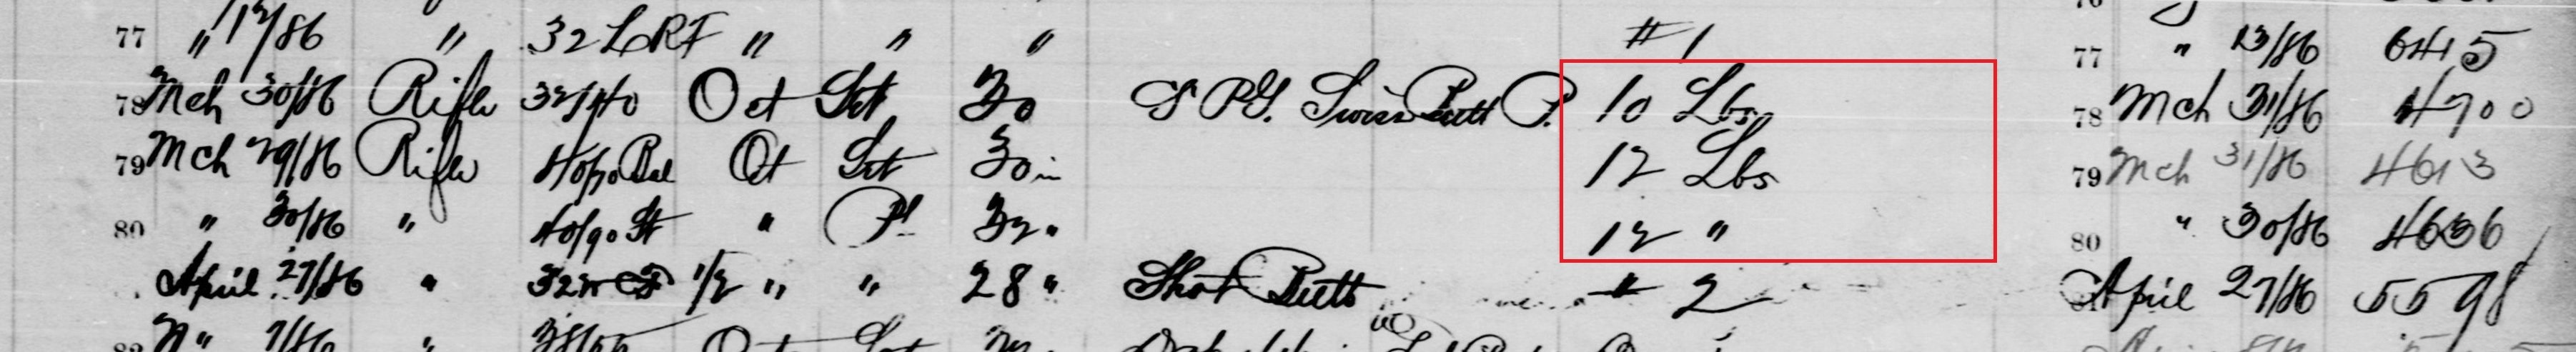 77 " 12/86 " 32 LRF " " " # 1 77 " 13/86 6415
78 Mch 30/86 Rifle 32/40 Oct Set 30 S P.G. Swiss Butt P. 10 Lbs 78 Mch 31/86 4700
79 Mch 29/86 Rifle 40/70 Bal Oct Set 30 in 12 Lbs 79 Mch 31/86 4613
80 " 30/86 " 40/90 St " Pl 32 " 12 " 80 " 30/86 4636
April 27/86 " 32 1/2 " " 28 " Shot Butt # 2 April 27/86 5598
7/86 " 38/55 Oct Set